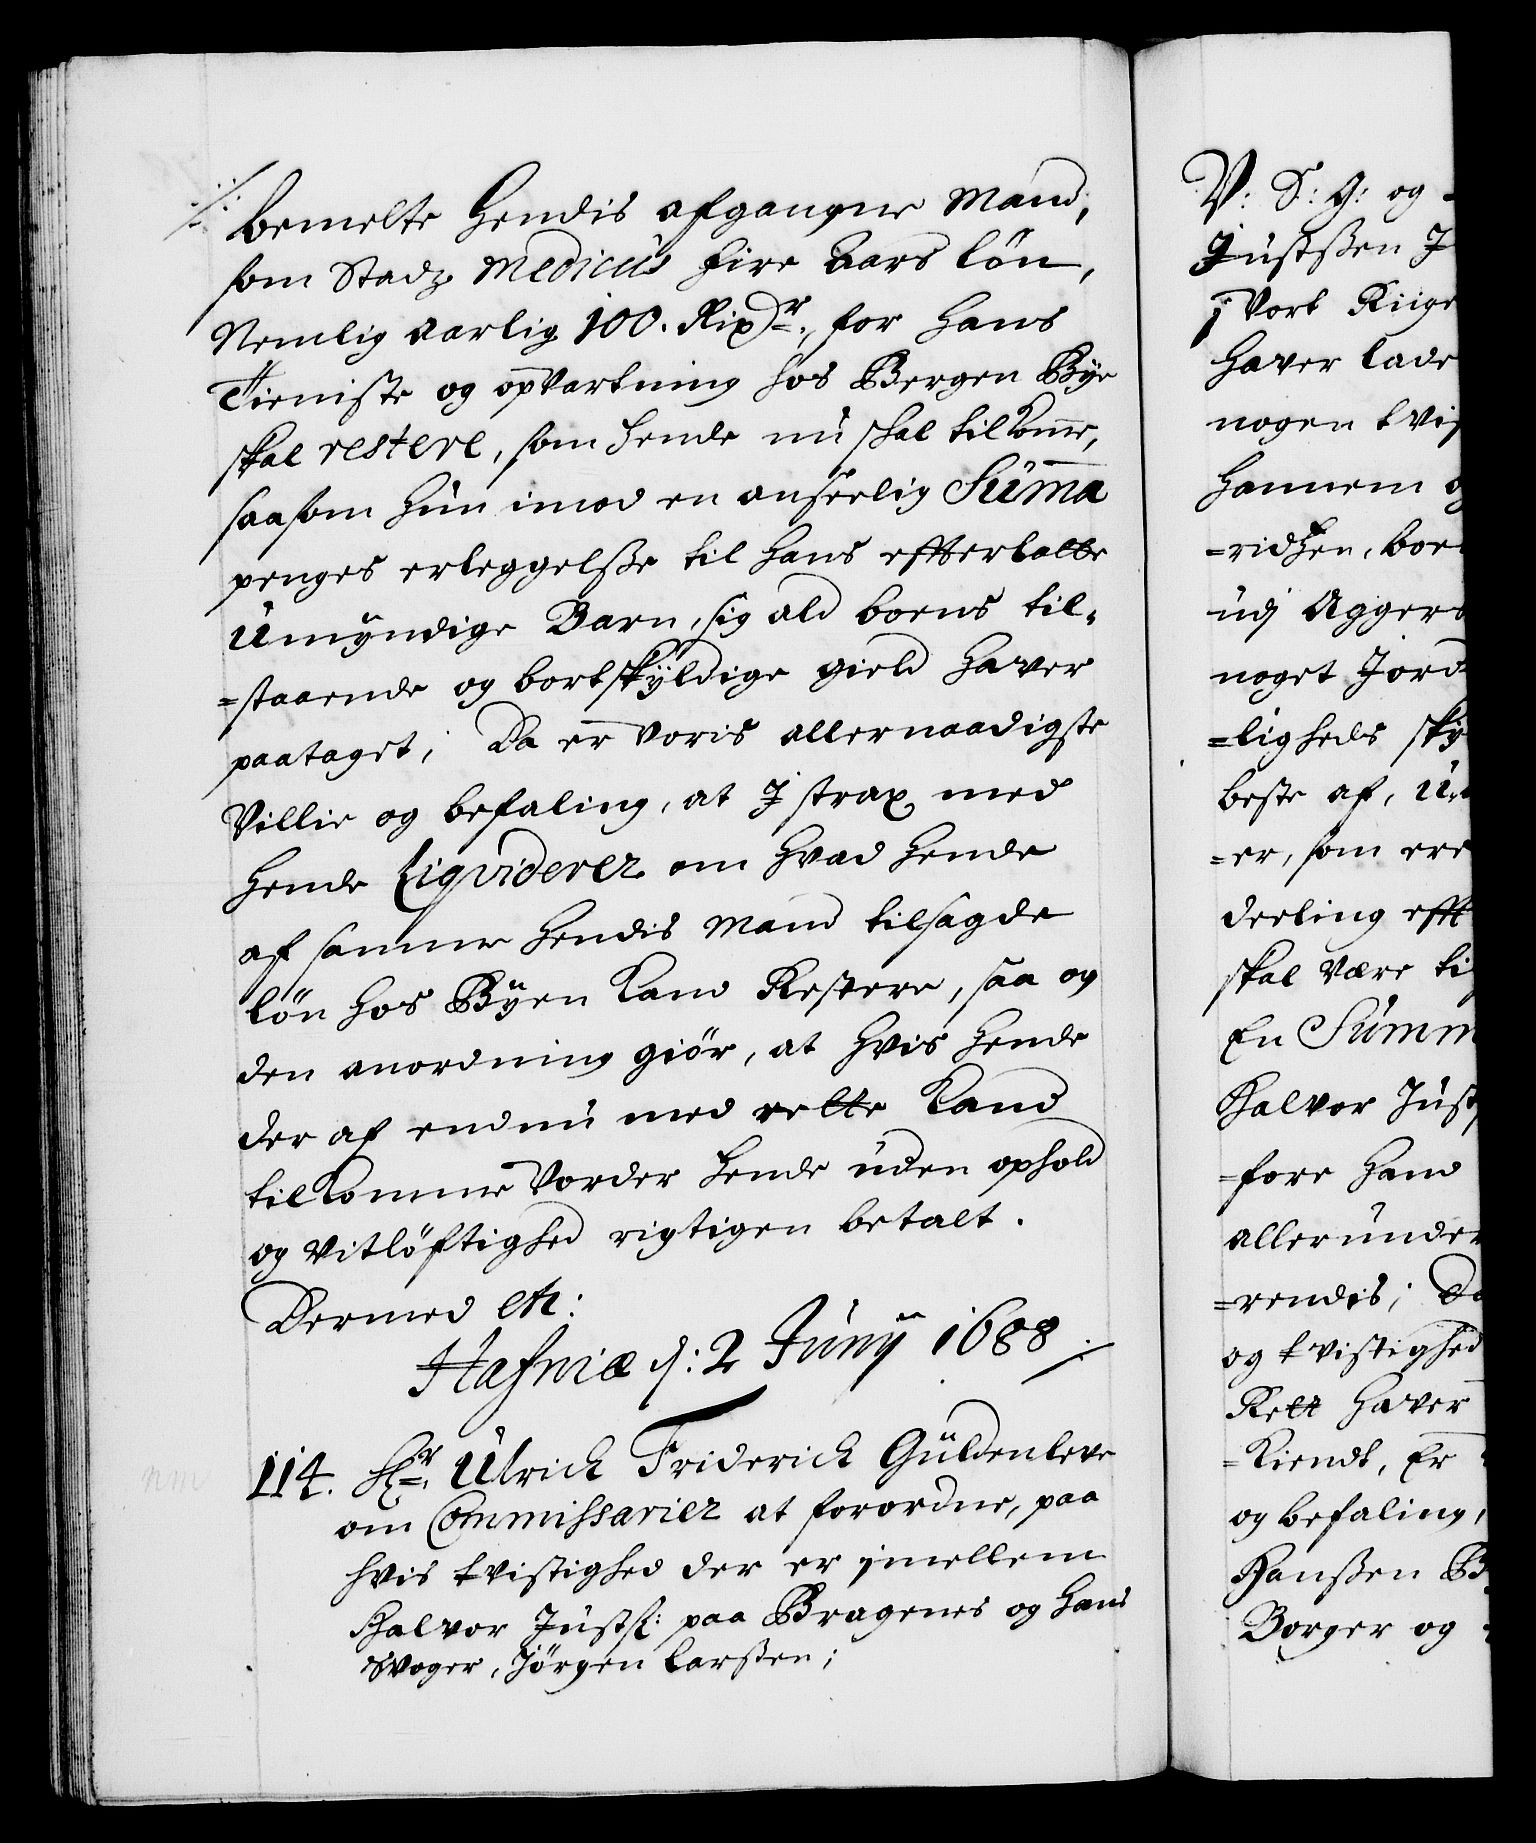 bemelte Hendis afgangne Mand,
som Stadz Medicus fire Aars løn,
Nemlig aarlig 100. Rixdr:, for Hans
Tieniste og opvartning hos Bergen Bÿe
skal restere, som hende nu skal tilkomme,
saasom Hun imod en anseelig Summa
penges erleggelsze til hans effterlatte
Umÿndige Barn, sig ald boens til-
=staaende og bortskÿldige gield haver
paataget; Da er Voris allernaadigste
Villie og befaling, at J strax med
Hende Liqviderer om hvad Hende
af samme Hendis Mand tilsagde
løn hos Bÿen kand Restere, saa og
den anordning giør, at hvis Hende
der af endnu med rette kand
tilkomme Vorder hende uden ophold
og vitløftighed rigtigen betalt.
Dermed etc:
Hafniæ d: 2 Junÿ 1688 ./.
114. Hr: Ulrich Friderich Güldenleve
om Commissarier at forordne, paa
hvis tvistighed der er imellem
Halvor Justs: paa Bragenes og hans
Svoger, Jørgen Larszen;
nm
V: S: G: og
Justszen J
j Vort Riige
Haver lade
nogen tvis
Hannem o
=ridzen, boe
udj Agger
noget Jord
=ligheds skÿ
beste af, U
=er, som ere
deeling efft
skal være ti
En Summ
Halvor Just
=fore Hand
allerunder
=rendis; Da
og tvistighed
Rett Haver
=kiendt, Er
og befaling,
Hanszen B
Borger og